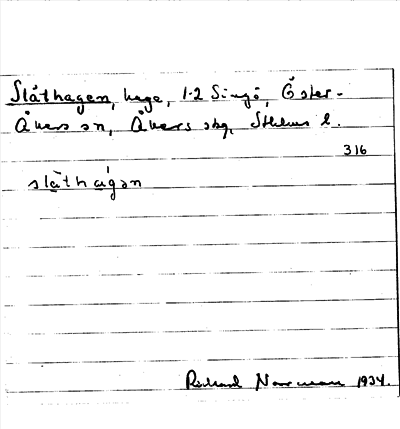 Slåthagen, hage, 1-2 Singö, Öster-
Åkers sn, Åkers skg, Sthlms l.
316
slåthāgən
Rickard Norrman 1934.